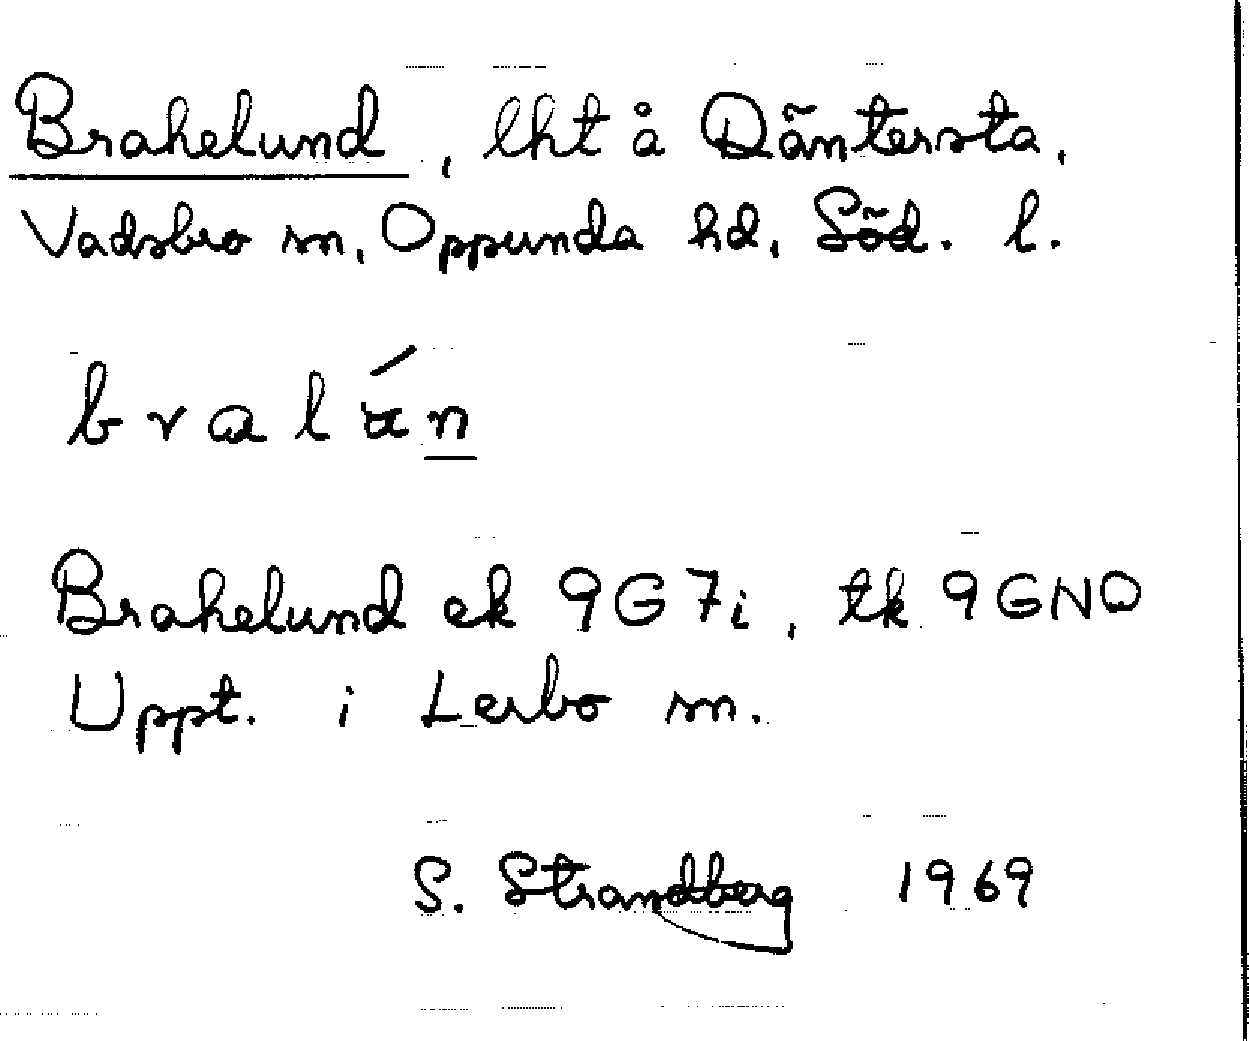 Brahelund, lht å Däntersta,
Vadsbro sn, Oppunda hd, Söd. l.
bralán
Brahelund ek 9G7i, tk 9GNO
Uppt. i Lerbo sn.
S. Strandberg 1969